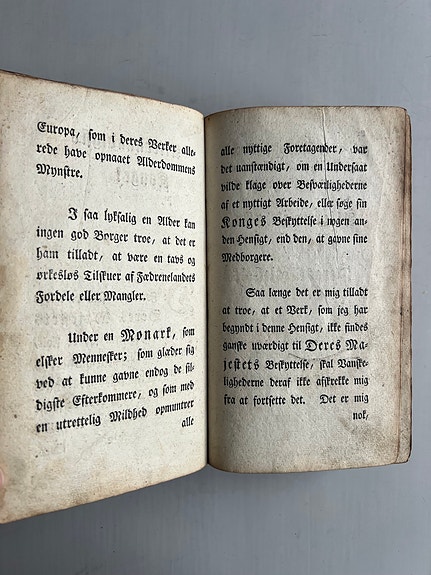 Europa, som i deres Verker alle-
rede have opnaaet Alderdommens
Mynstre.
I saa lyksalig en Alder kan
ingen god Borger troe, at det er
ham tilladt, at være en tavs og
ørkesløs Tilskuer af Fædrenelandets
Fordele eller Mangler.
Under en Monark, som
elsker Mennesker; som glæder sig
ved at kunne gavne endog de sil-
digste Efterkommere, og som med
en utrettelig Mildhed opmuntrer
alle
alle nyttige Foretagender, var
det uanstændigt, om en Undersaat
vilde klage over Besværlighederne
af et nyttigt Arbeide, eller søge sin
Konges Beskyttelse i nogen an-
den Hensigt, end den, at gavne sine
Medborgere.
Saa længe det er mig tilladt
at troe, at et Verk, som jeg har
begyndt i denne Hensigt, ikke findes
ganske uværdigt til Deres Ma-
jestets Beskyttelse, skal Vanske-
lighederne deraf ikke afskrekke mig
fra at fortsette det. Det er mig
nok,